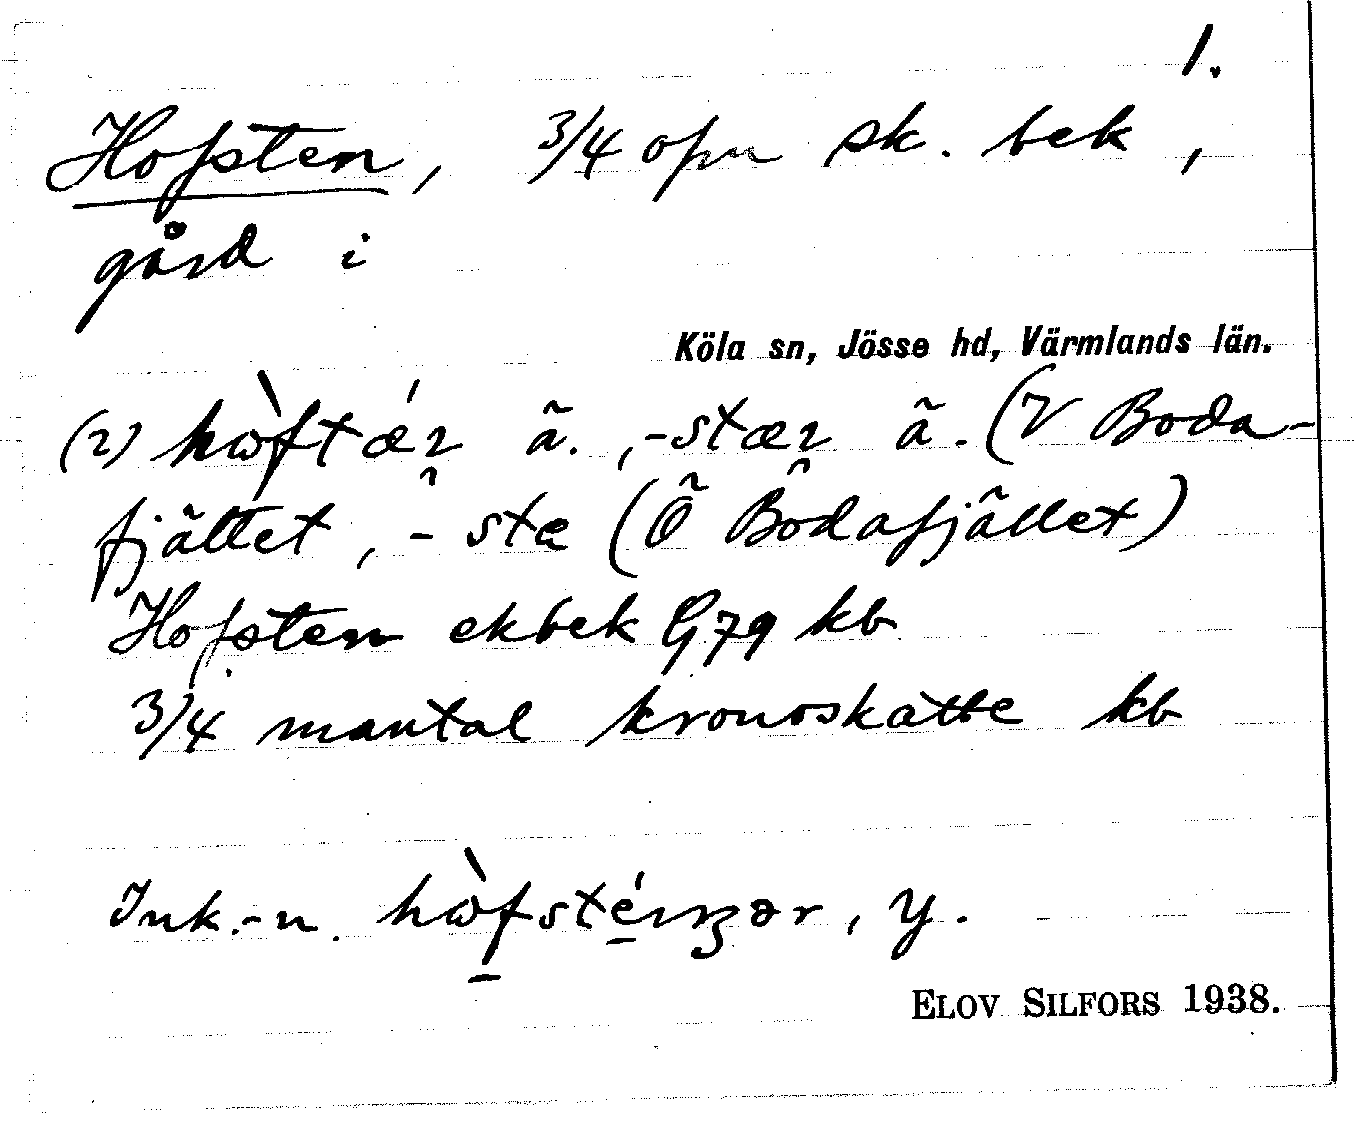 1.
Hofsten, 3/4 opu sk. bek,
gård i
Köla sn, Jösse hd, Värmlands län.
(2) hòftǽr ä., -stær ä. (V Boda-
fjället, - stæ (Ö Bodafjället)
Hofsten ekbek G79 kb
3/4 mantal kronoskatte kb
Ink.-n. hòfsténgər, y.
ELOV SILFORS 1938.